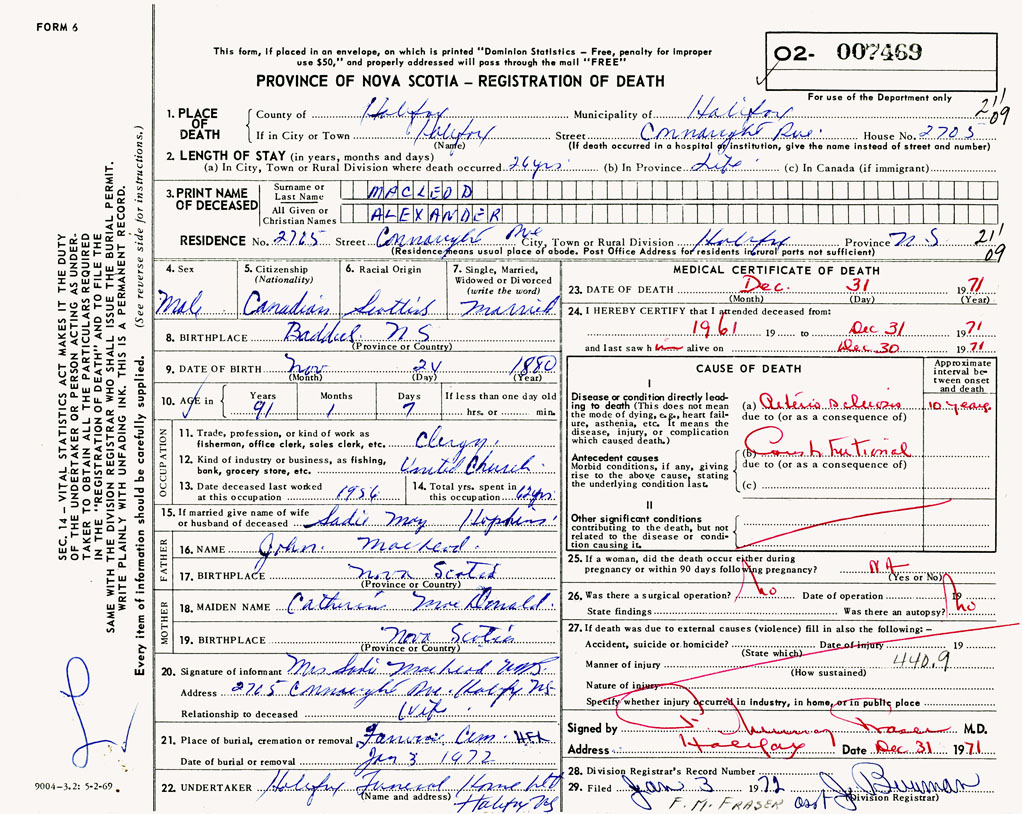 FORM 6
This form, if placed in an envelope, on which is printed "Dominion Statistics – Free, penalty for improper
use $50," and properly addressed will pass through the mail "FREE"
PROVINCE OF NOVA SCOTIA – REGISTRATION OF DEATH
O2- 007469
For use of the Department only
21/09
1. PLACE OF DEATH
County of Halifax Municipality of Halifax
If in City or Town Halifax Street Connaught Ave. House No. 2705
(Name) (If death occurred in a hospital or institution, give the name instead of street and number)
2. LENGTH OF STAY (in years, months and days)
(a) In City, Town or Rural Division where death occurred 26 yrs. (b) In Province Life (c) In Canada (if immigrant)
3. PRINT NAME OF DECEASED
Surname or Last Name MACLEOD
All Given or Christian Names ALEXANDER
RESIDENCE No. 2705 Street Connaught Ave City, Town or Rural Division Halifax Province N.S.
(Residence means usual place of abode. Post Office Address for residents in rural parts not sufficient)
21/09
4. Sex
Male
5. Citizenship
(Nationality)
Canadian
6. Racial Origin
Scottish
7. Single, Married,
Widowed or Divorced
(write the word)
Married
8. BIRTHPLACE Baddeck N.S.
(Province or Country)
9. DATE OF BIRTH Nov 24 1880
(Month) (Day) (Year)
10. AGE in Years Months Days If less than one day old
91 1 7 hrs. or min.
OCCUPATION
11. Trade, profession, or kind of work as
fisherman, office clerk, sales clerk, etc. Clergy.
12. Kind of industry or business, as fishing,
bank, grocery store, etc. United Church.
13. Date deceased last worked
at this occupation 1956
14. Total yrs. spent in
this occupation 62 yrs
15. If married give name of wife
or husband of deceased Sadie May Hopkins
FATHER
16. NAME John. MacLeod.
17. BIRTHPLACE Nova Scotia
(Province or Country)
MOTHER
18. MAIDEN NAME Catherine MacDonald.
19. BIRTHPLACE Nova Scotia
(Province or Country)
20. Signature of informant Mrs Sadie MacLeod
Address 2705 Connaught Ave. Halifax NS
Relationship to deceased Wife
21. Place of burial, cremation or removal Fairview Cem. HFX
Date of burial or removal Jan 3 1972
22. UNDERTAKER Halifax Funeral Home Ltd
(Name and address) Halifax NS
MEDICAL CERTIFICATE OF DEATH
23. DATE OF DEATH Dec. 31 1971
(Month) (Day) (Year)
24. I HEREBY CERTIFY that I attended deceased from:
1961 19 to Dec 31 1971
and last saw him alive on Dec 30 1971
CAUSE OF DEATH
Approximate
interval be-
tween onset
and death
I
Disease or condition directly lead-
ing to death (This does not mean
the mode of dying, e.g., heart fail-
ure, asthenia, etc. It means the
disease, injury, or complication
which caused death.)
(a) Arteriosclerosis 10 years
due to (or as a consequence of)
Antecedent causes
Morbid conditions, if any, giving
rise to the above cause, stating
the underlying condition last.
(b) Constitutional
due to (or as a consequence of)
(c)
II
Other significant conditions
contributing to the death, but not
related to the disease or condi-
tion causing it.
25. If a woman, did the death occur either during
pregnancy or within 90 days following pregnancy? NA
(Yes or No)
26. Was there a surgical operation? No Date of operation 19
State findings Was there an autopsy? No
27. If death was due to external causes (violence) fill in also the following: –
Accident, suicide or homicide? Date of injury 19
(State which)
Manner of injury 440.9
(How sustained)
Nature of injury
Specify whether injury occurred in industry, in home, or in public place
Signed by F. Murray Fraser M.D.
Address Halifax Date Dec 31 1971
28. Division Registrar's Record Number
29. Filed Jan 3 1972 J. Burman
F. M. FRASER asst (Division Registrar)
SEC. 14 – VITAL STATISTICS ACT MAKES IT THE DUTY
OF THE UNDERTAKER OR PERSON ACTING AS UNDER-
TAKER TO OBTAIN ALL THE PARTICULARS REQUIRED
IN THE "REGISTRATION OF DEATH" AND TO FILE THE
SAME WITH THE DIVISION REGISTRAR WHO SHALL ISSUE THE BURIAL PERMIT.
WRITE PLAINLY WITH UNFADING INK. THIS IS A PERMANENT RECORD.
Every item of information should be carefully supplied. (See reverse side for instructions.)
9004-3.2: 5-2-69